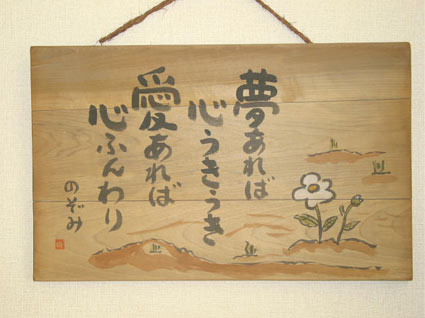 夢あれば
心うきうき
愛あれば
心ふんわり
のぞみ